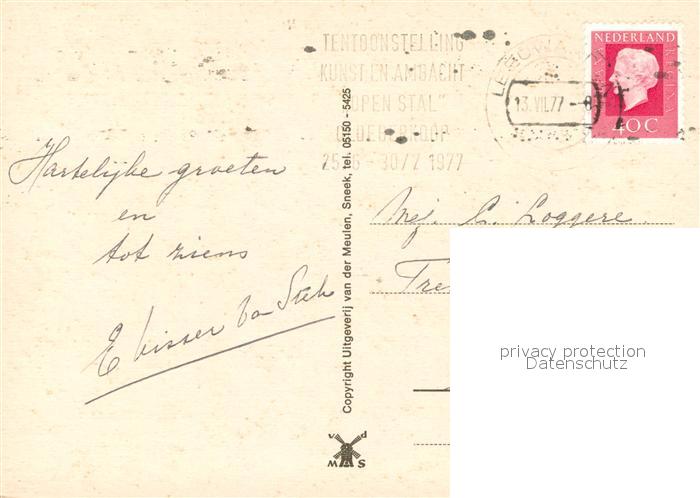 TENTOONSTELLING
KUNST EN AMBACHT
"OPEN STAL"
OLDEBERKOOP
25/6 - 30/7 1977
LEEUWA
13.VII.77
NEDERLAND
40C
Hartelijke groeten
en
tot ziens
E Visser
Copyright Uitgeverij van der Meulen, Sneek, tel. 05150 - 5425
Mej. C. Loggere
Tre
v d
M S
privacy protection
Datenschutz